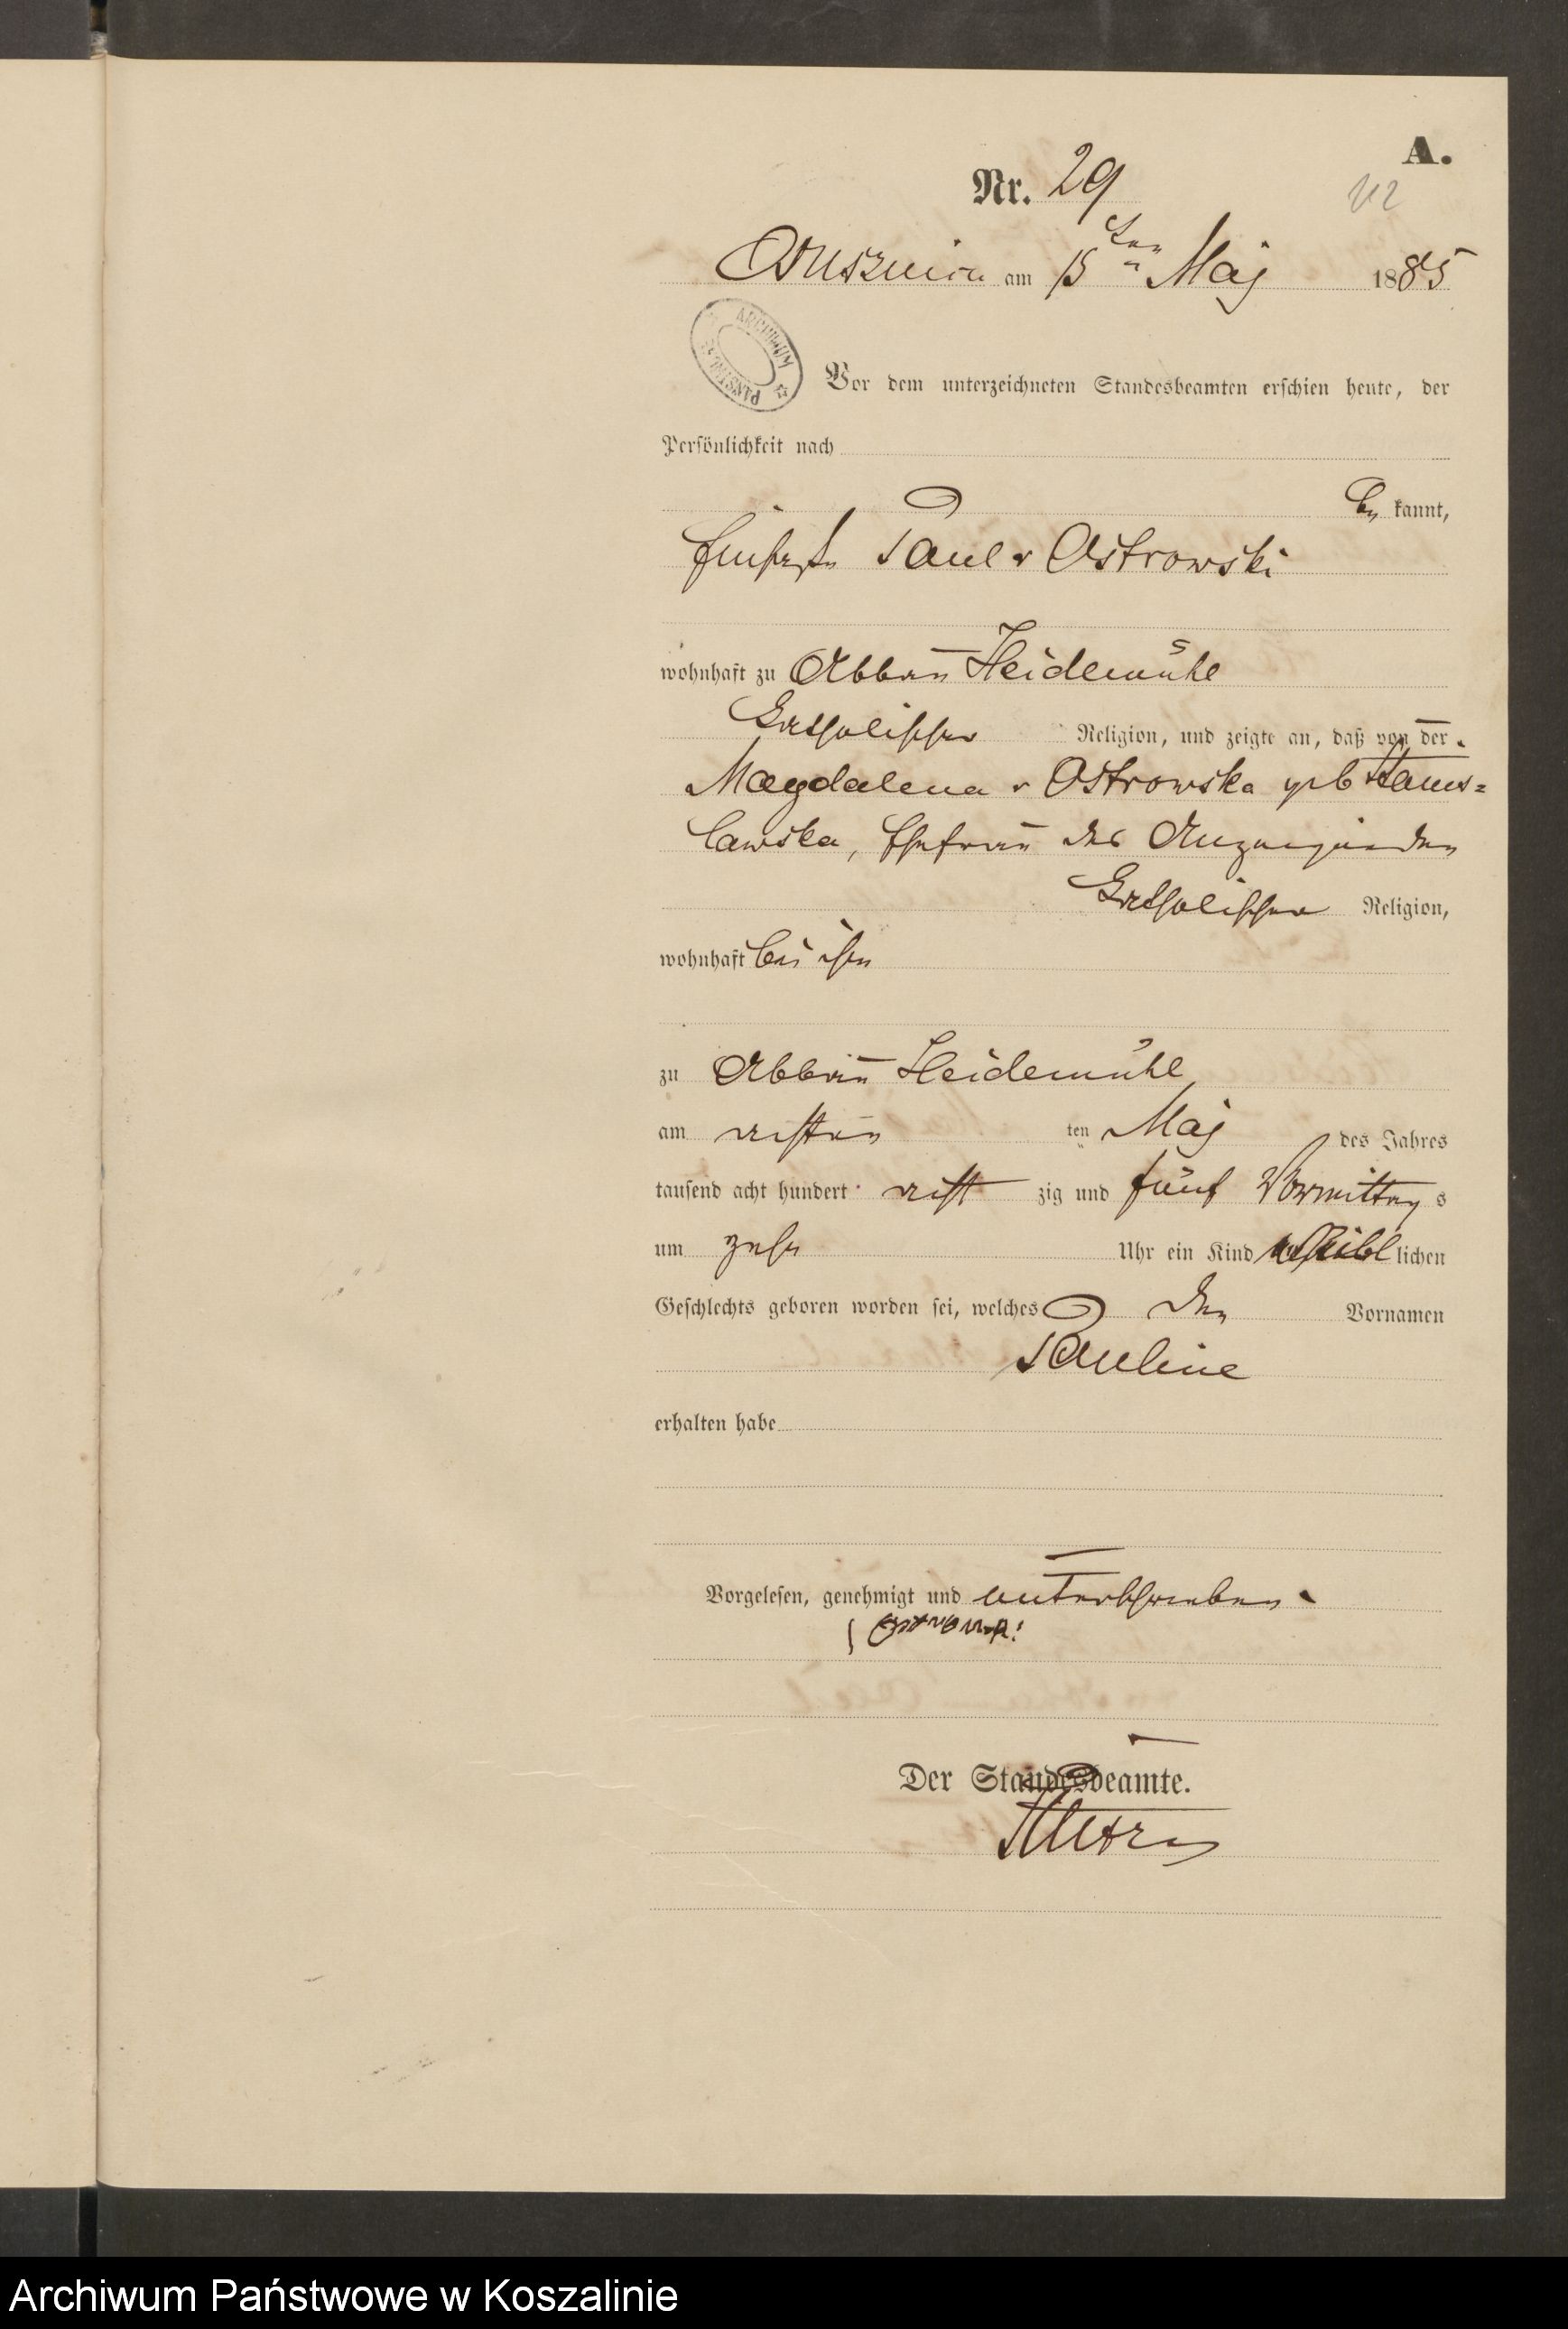 A.
Nr. 29
112
am 15ten Maj 1885
ARCHIWUM PAŃSTWOWE
Vor dem unterzeichneten Standesbeamten erschien heute, der
Persönlichkeit nach
be kannt,
Paul v Ostrowski
wohnhaft zu Abbau Heidemühl
katholischer Religion, und zeigte an, daß von der
Magdalena v Ostrowska geb Stanis=
lawska, Ehefrau des Anzeigenden
katholischer Religion,
wohnhaft bei ihm
zu Abbau Heidemühl
am achten ten Maj des Jahres
tausend acht hundert acht zig und fünf Vormittag s
um zehn Uhr ein Kind weibl lichen
Geschlechts geboren worden sei, welches den Vornamen
Pauline
erhalten habe
Vorgelesen, genehmigt und unterschrieben
Der Standesbeamte.
Archiwum Państwowe w Koszalinie